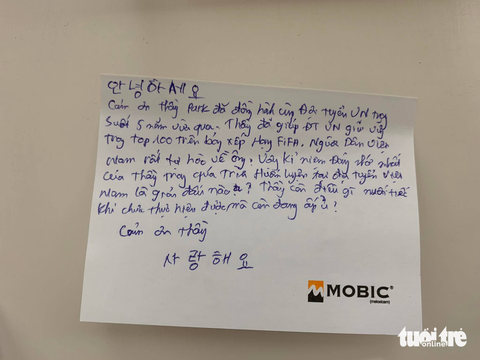 안녕하세요
Cảm ơn thầy Park đã đồng hành cùng Đội tuyển VN
suốt 5 năm vừa qua. Thầy đã giúp ĐT VN giữ vững
trong top 100 trên bảng xếp hạng FiFA. Người Dân Việt
Nam rất tự hào về ông. Vậy kỉ niệm đáng nhớ nhất
của Thầy trong quá trình Huấn luyện tại đội tuyển Việt
Nam là gì? Thầy còn điều gì nuối tiếc
khi chưa thực hiện được mà còn đang ấp ủ?
Cảm ơn thầy
사랑해요
MOBIC®
(meloxicam)
tuổi trẻ
online